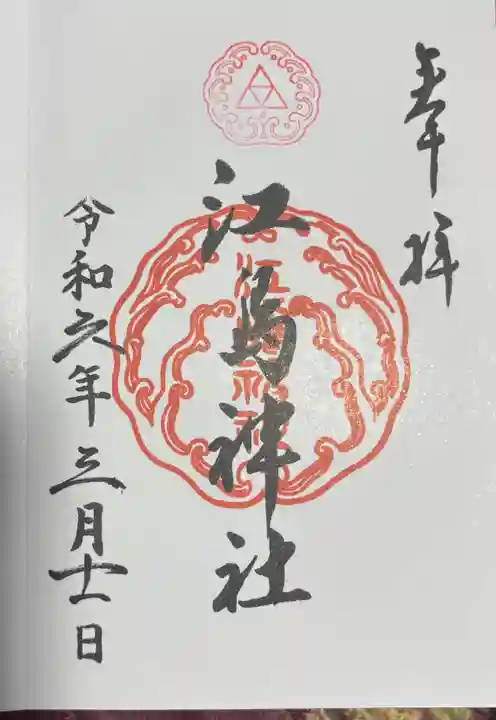 奉拝
江島神社
江島神社
令和六年三月十一日